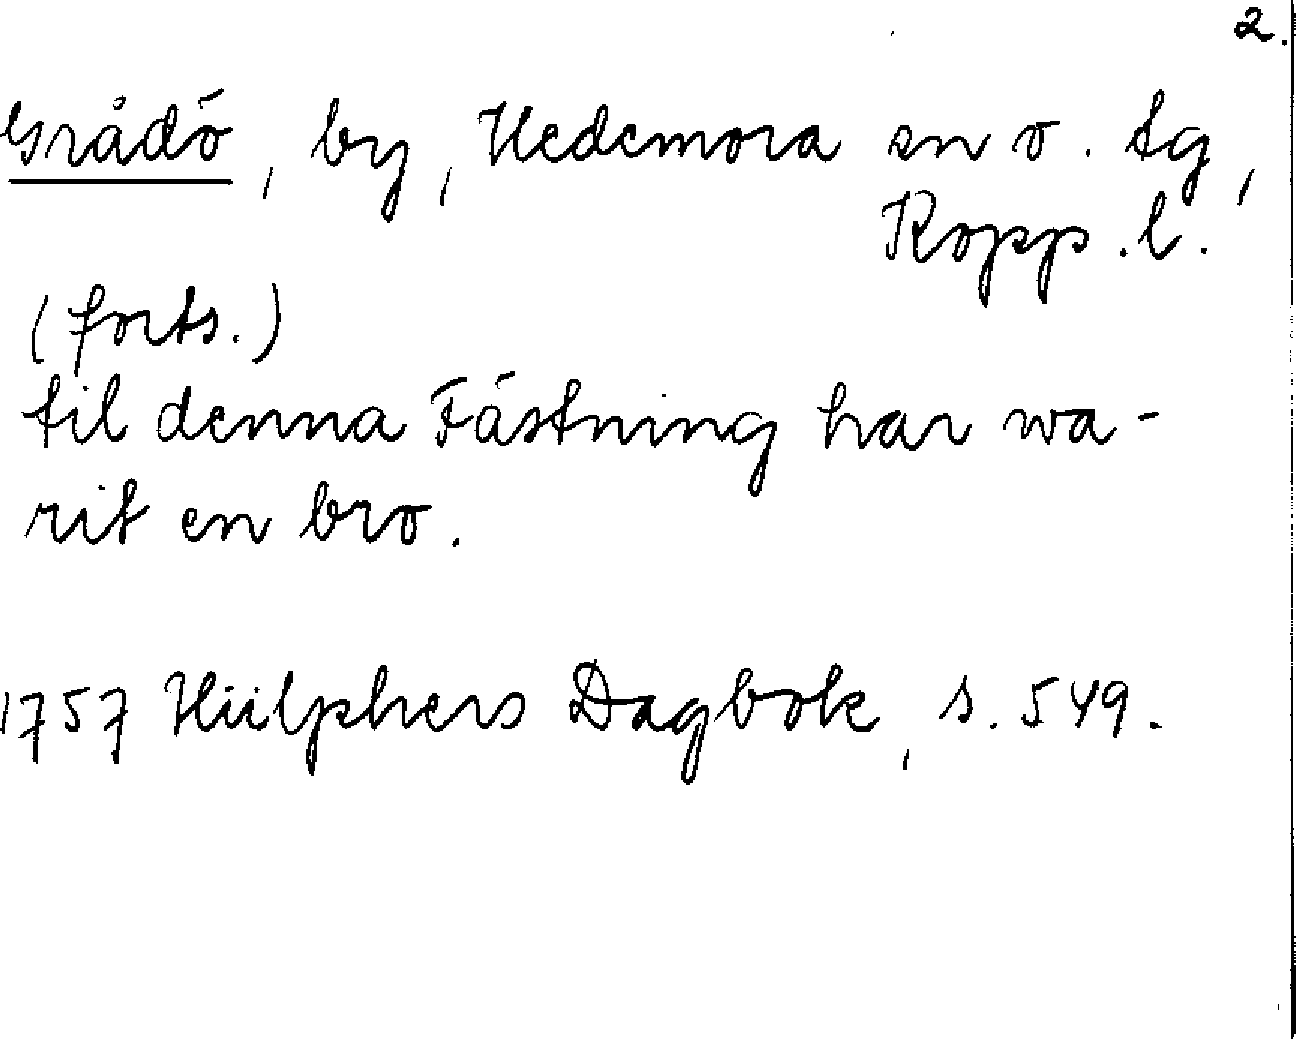 2.
Grådö, by, Hedemora sn o. tg,
Kopp.l.
(forts.)
til denna Fästning har wa-
rit en bro.
1757 Hülphers Dagbok, s. 549.